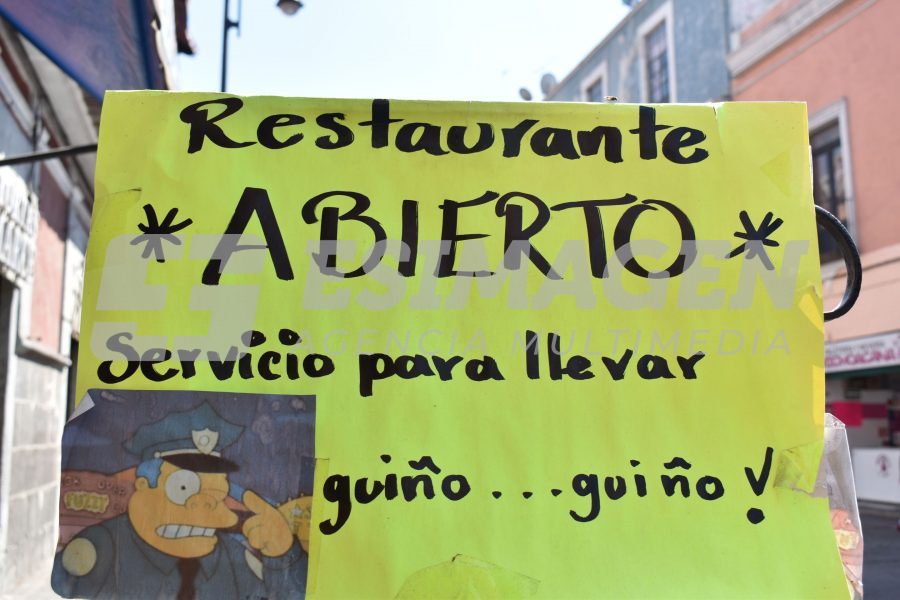 Restaurante
* ABIERTO *
Servicio para llevar
guiño ... guiño !
ESIMAGEN
AGENCIA MULTIMEDIA
FUZZY